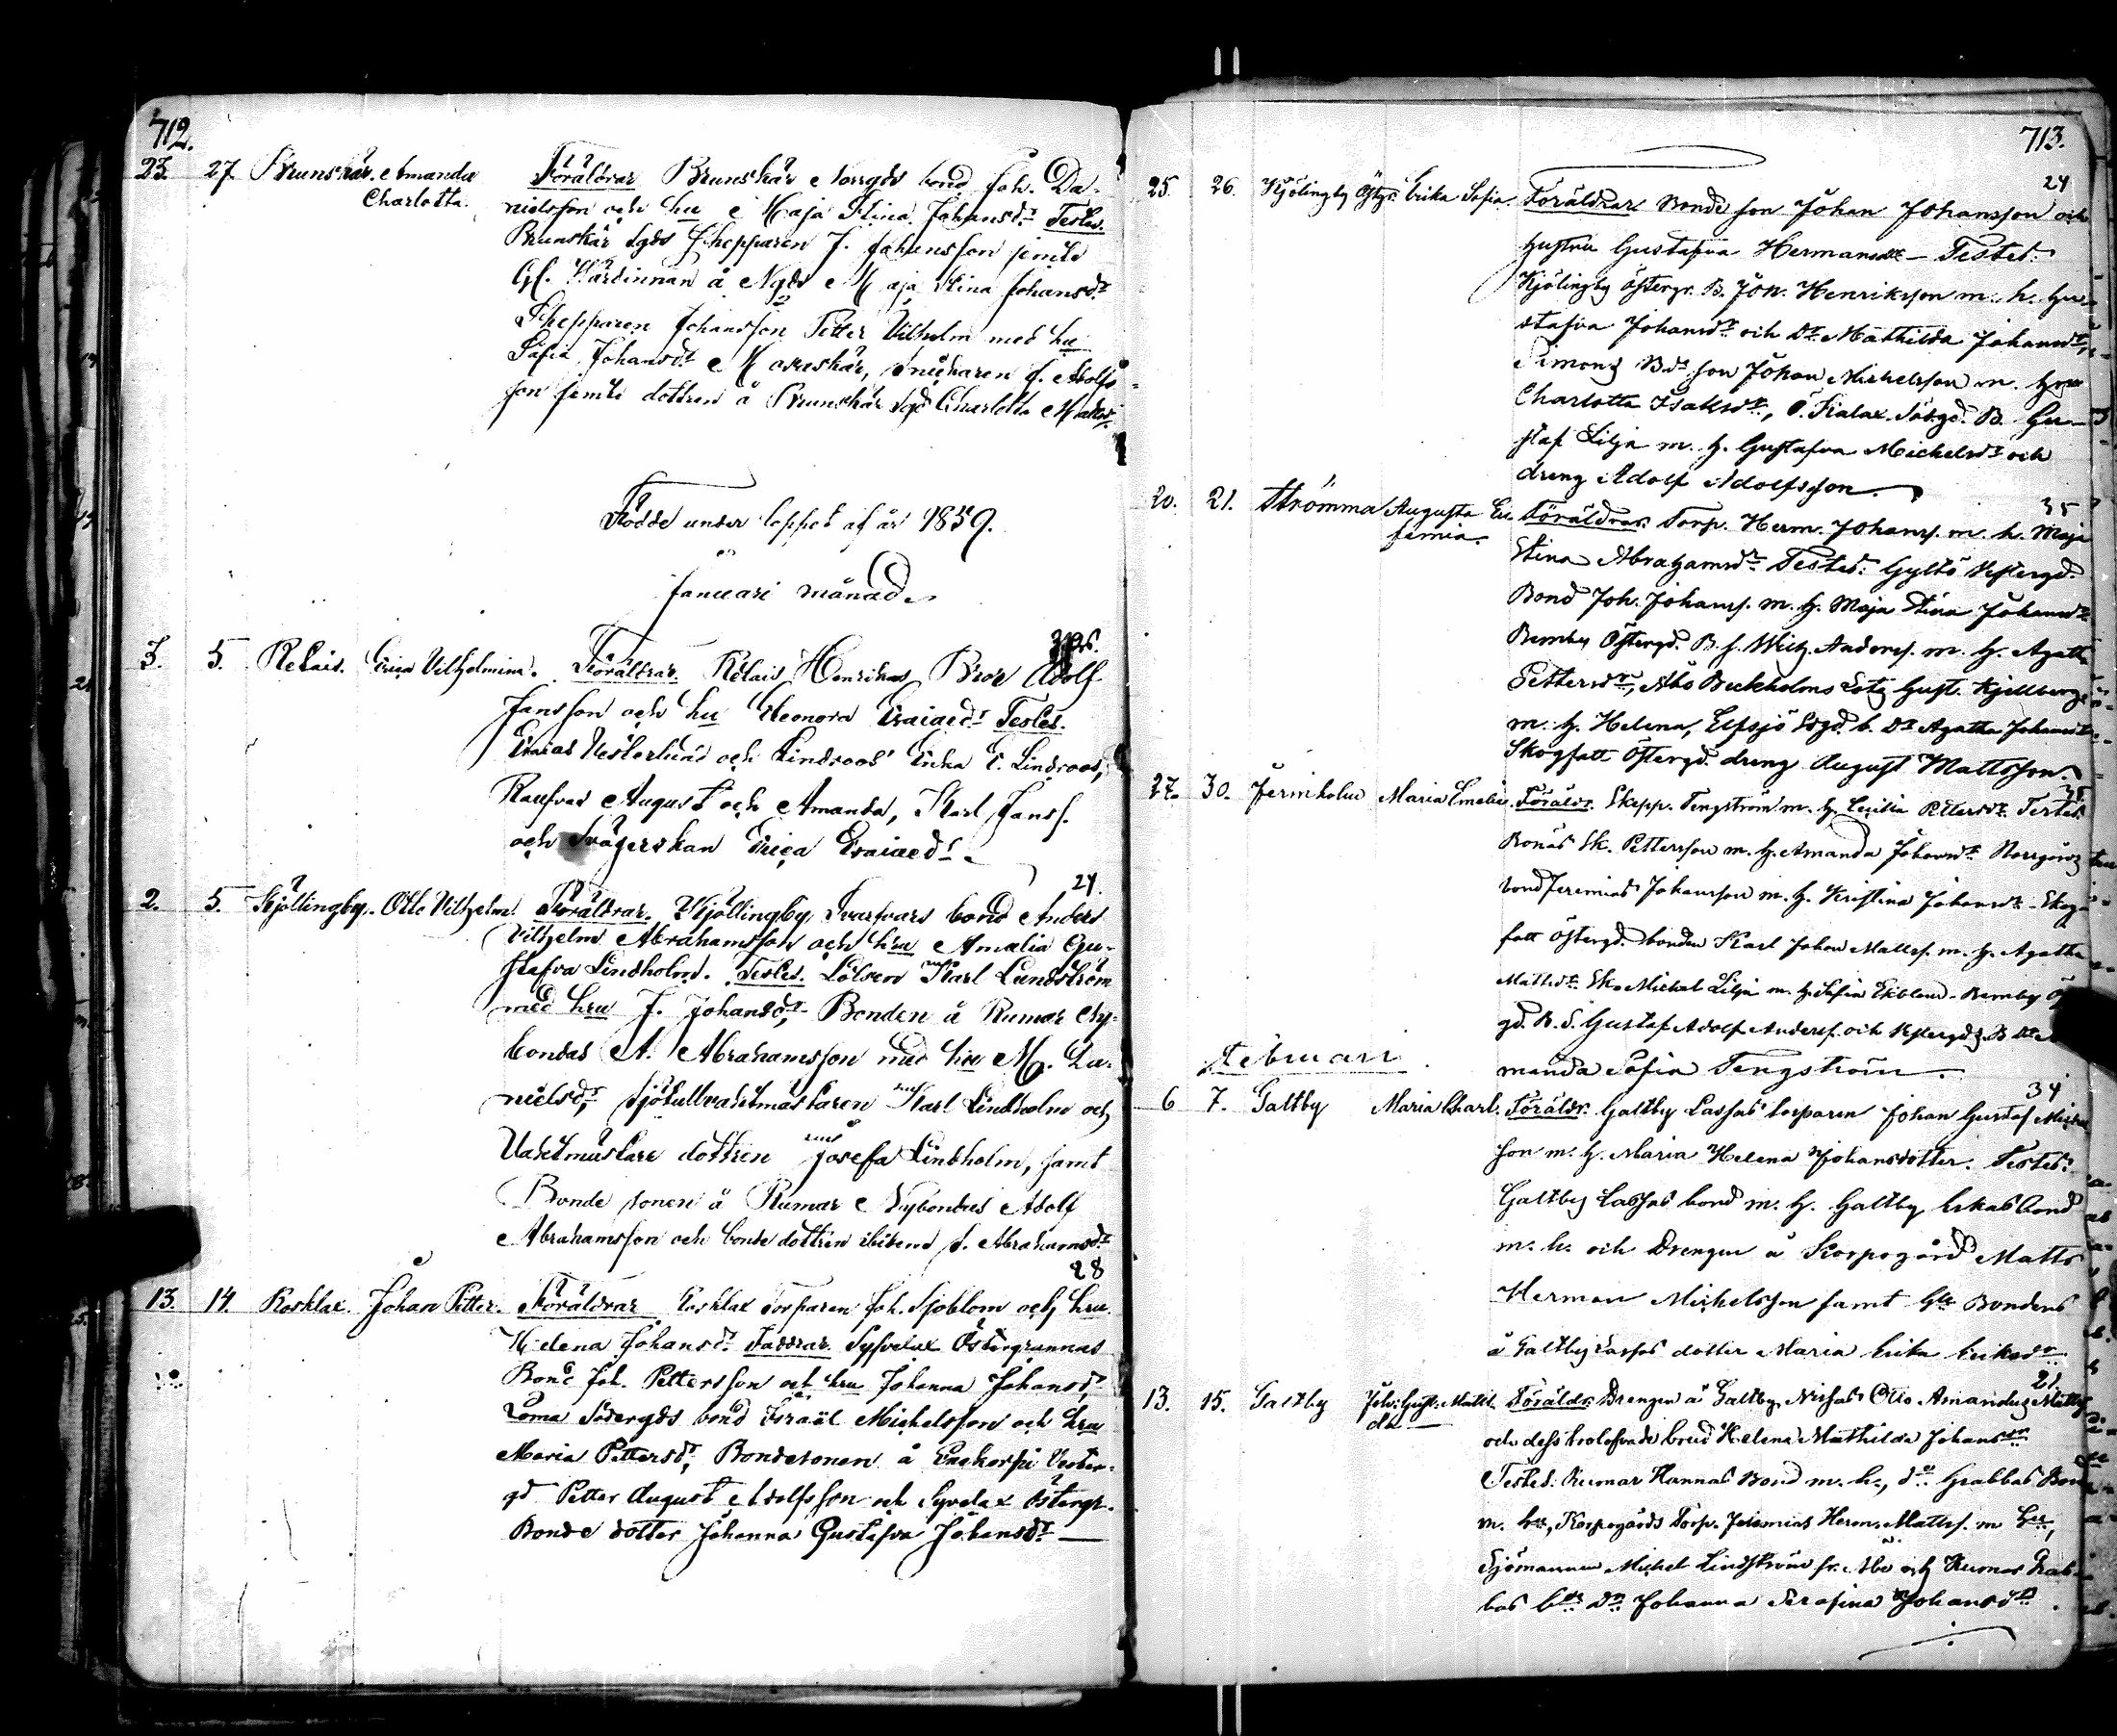 712.
23. 27. Brunskär. Amanda Föräldrar Brunskär Norrgds bond Joh. Da-
Charlotta. nielsson och hu Maja Stina Johansdr Testes.
Brunskär Sgds Schepparen J. Johansson jemte
Gl. Värdinnan å Ngds Maja Stina Johansdr
Schepparen Johansson Petter Vilhelm med hu
Sofia Johansdr, Snickaren J. Adolfs-
son jemte dottren å Brunskär Sgd Charlotta
Födde under loppet af år 1859.
Januari månad.
3. 5. Relais. Erica Vilhelmina. Föräldrar. Relais Henrikas Bror Adolf
Jansson och hu Eleonora Esaiaedr Testes.
Esaias Vesterlund och Lindroos' Erika E. Lindroos,
August och Amanda, Karl Janss.
och Svägerskan Erica Esaiaedr
24.
2. 5. Kjöllingby. Otto Vilhelm. Föräldrar. Kjöllingby Svartvars bond Anders
Vilhelm Abrahamsson och hru Amalia Gu-
stafva Lindholm. Testes. Lotsen Karl Lundström
med hru J. Johansdr, Bonden å Rumar Ny-
bondas A. Abrahamsson med hru M. Da-
nielsdr, Sjötullvaktmästaren Karl Lindholm och
Vaktmästare dottren Josefa Lindholm, samt
Bonde sonen å Rumar Nybondas Adolf
Abrahamsson och bonde dottren ibidem J. Abrahamsdr
28
13. 14. Rosklax. Johan Petter. Föräldrar Rosklax torparen Joh. Sjöblom och hru
Helena Johansdr. Faddrar. Syfvelax Östergrannas
Bond Joh. Pettersson och hru Johanna Johansdr,
Loma Södergds bond Israël Michelsson och hru
Maria Pettersdr, Bondesonen å Enekorpi Vester-
gd Petter August Adolfsson och Syvelax Östergr.
Bonde dotter Johanna Gustafva Johansdr
713.
24
25. 26. Kjölingby Östgr. Erika Sofia. Föräldrar Bonde son Johan Johansson och
hustru Gustafva Hermansdtr - Testes.
Kjölingby Östergr. B. Joh. Henriksson m. h. Gu-
stafva Johansdr och Dr Mathilda Johansdr,
Simons Bds son Johan Michelsson m. hru
Charlotta Isaksdr, Ö. Fialax Södgd. B. Gu-
staf Lilja m. h. Gustafva Michelsdr och
dreng Adolf Adolfsson
35
20. 21. Strömma Augusta Eu- Föräldrar. Torp. Herm. Johanss. m. h. Maja
femia. Stina Abrahamsdr Testes: Gyltö Vestergd.
Bond Joh. Johanss. m. h. Maja Stina Johansdr
Bemby Östergd. B. s. Wilh. Anderss. m. h. Agatha
Pettersdr, Åbo Beckholms Lots Gust. Kjellberg
m. h. Helena, Elfsjö Sdgd. b. Dr Agatha Johansdr
Skogfatt Östergd. dreng August Mattsson.
38
27. 30. Jermholm Maria Emelie. Föräldr. Skepp. Tengström m. h. Cecilia Pettersdr Testes
Bonäs Sk. Pettersson m. h. Amanda Johansdr Norrgårds
bond Jeremias Johansson m. h. Kristina Johansdr - Skog-
fatt Östergd. bonden Karl Johan Mattss. m. h. Agatha
Mattsdr Sk. Michel Lilja m. h. Sofia Ekblom - Bemby Ös
gd. B. S. Gustaf Adolf Anderss. och Vestergds B. Dtr A
manda Sofia Tengström
Februari
34
6 7. Galtby Maria Charl. Föräldr. Galtby Lassas torparen Johan Gustaf Michels
son m. h. Maria Helena Johansdotter. Testes:
Galtby Lassas bond m. h. Galtby Erkas bond
m. h. och Drengen å Korpogård Matts
Herman Michelsson samt Gle Bondens
å Galtby Lassas dotter Maria Erika Eriksdr
21.
13. 15. Galtby Joh: Gust: Mathil- Föräldr. Drengen å Galtby Nissas Otto Amandus Matts
da och dess trolofvade brud Helena Mathilda Johansdr
Testes: Rumar Hannas Bond m. h., do Grabbas Bond
m. hu, Korpogårds Torp. Jeremias Herm. Mattss. m hu,
Sjömannen Michel Lindström fr. Åbo och Rumar Grab-
bas bds dr Johanna Serafina Johansdr